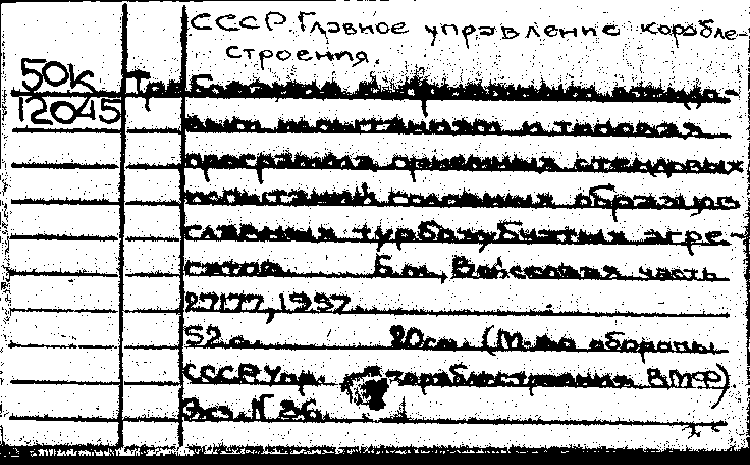 СССР. Главное управление корабле-
строения.
50к
12045
Требования к приемным стендо-
вым испытаниям и типовая
программа приемных стендовых
испытаний головных образцов
главных турбозубчатых агре-
гатов. Б.м., Войсковая часть
27177, 1957.
52 с. 20см. (М-во обороны
СССР. Упр. кораблестроения ВМФ)
Экз. N 36.